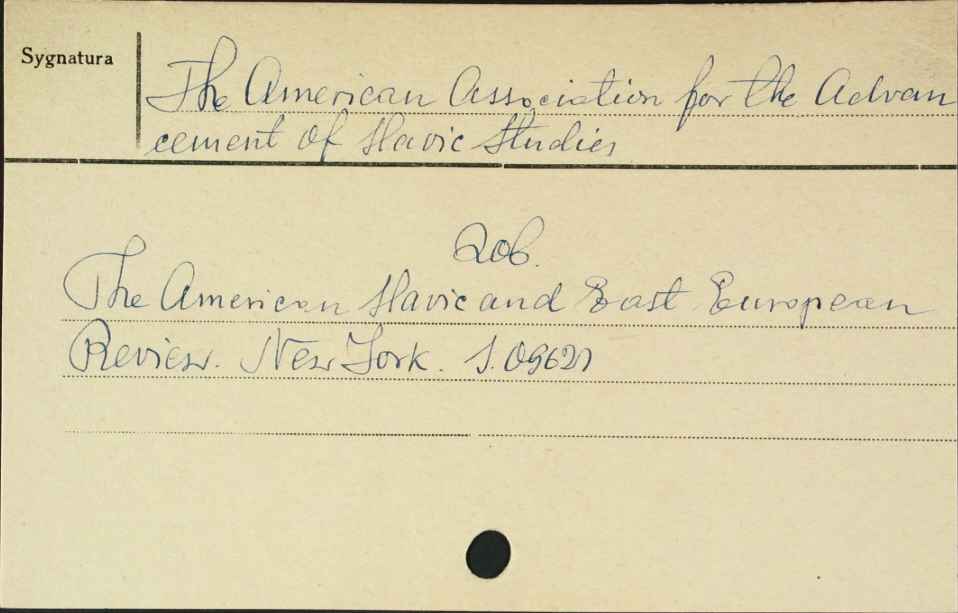 Sygnatura
The American Association for the Advan
cement of Slavic Studies
Zob.
The American Slavic and East European
Review. New York. S. 09621